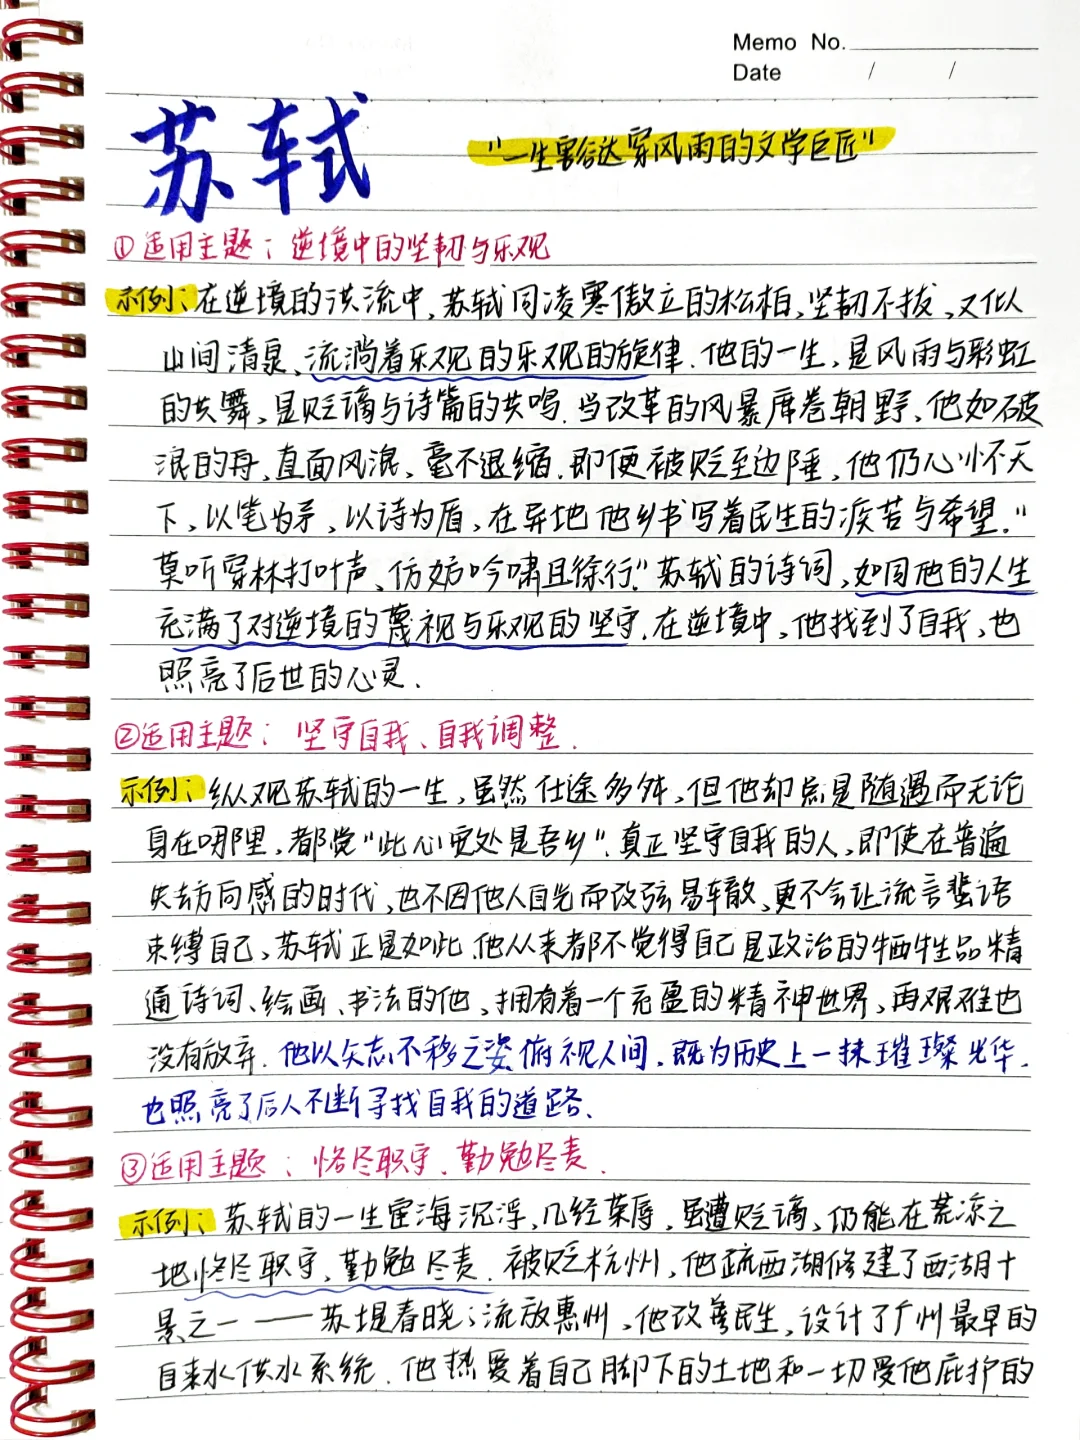 Memo No.
Date / /
苏轼
"一生豁达穿风雨的文学巨匠"
①适用主题：逆境中的坚韧与乐观
示例：在逆境的洪流中，苏轼同凌寒傲立的松柏，坚韧不拔，又似
山间清泉，流淌着乐观的乐观的旋律.他的一生，是风雨与彩虹
的共舞，是贬谪与诗篇的共鸣.当改革的风暴席卷朝野，他如破
浪的舟，直面风浪，毫不退缩.即便被贬至边陲，他仍心怀天
下，以笔为矛，以诗为盾，在异地他乡书写着民生的疾苦与希望."
莫听穿林打叶声，何妨吟啸且徐行."苏轼的诗词，如同他的人生
充满了对逆境的蔑视与乐观的坚守.在逆境中，他找到了自我，也
照亮了后世的心灵.
②适用主题：坚守自我、自我调整.
示例：纵观苏轼的一生，虽然仕途多舛，但他却总是随遇而无论
身在哪里，都觉"此心安处是吾乡".真正坚守自我的人，即使在普遍
失去方向感的时代，也不因他人目光而改弦易辙，更不会让流言蜚语
束缚自己，苏轼正是如此.他从来都不觉得自己是政治的牺牲品精
通诗词、绘画、书法的他，拥有着一个充盈的精神世界，再艰难也
没有放弃.他以矢志不移之姿俯视人间，既为历史上一抹璀璨光华.
也照亮了后人不断寻找自我的道路.
③适用主题：恪尽职守、勤勉尽责.
示例：苏轼的一生宦海沉浮，几经荣辱，虽遭贬谪，仍能在荒凉之
地恪尽职守，勤勉尽责.被贬杭州，他疏西湖修建了西湖十
景之一——苏堤春晓；流放惠州，他改善民生，设计了广州最早的
自来水供水系统.他热爱着自己脚下的土地和一切受他庇护的